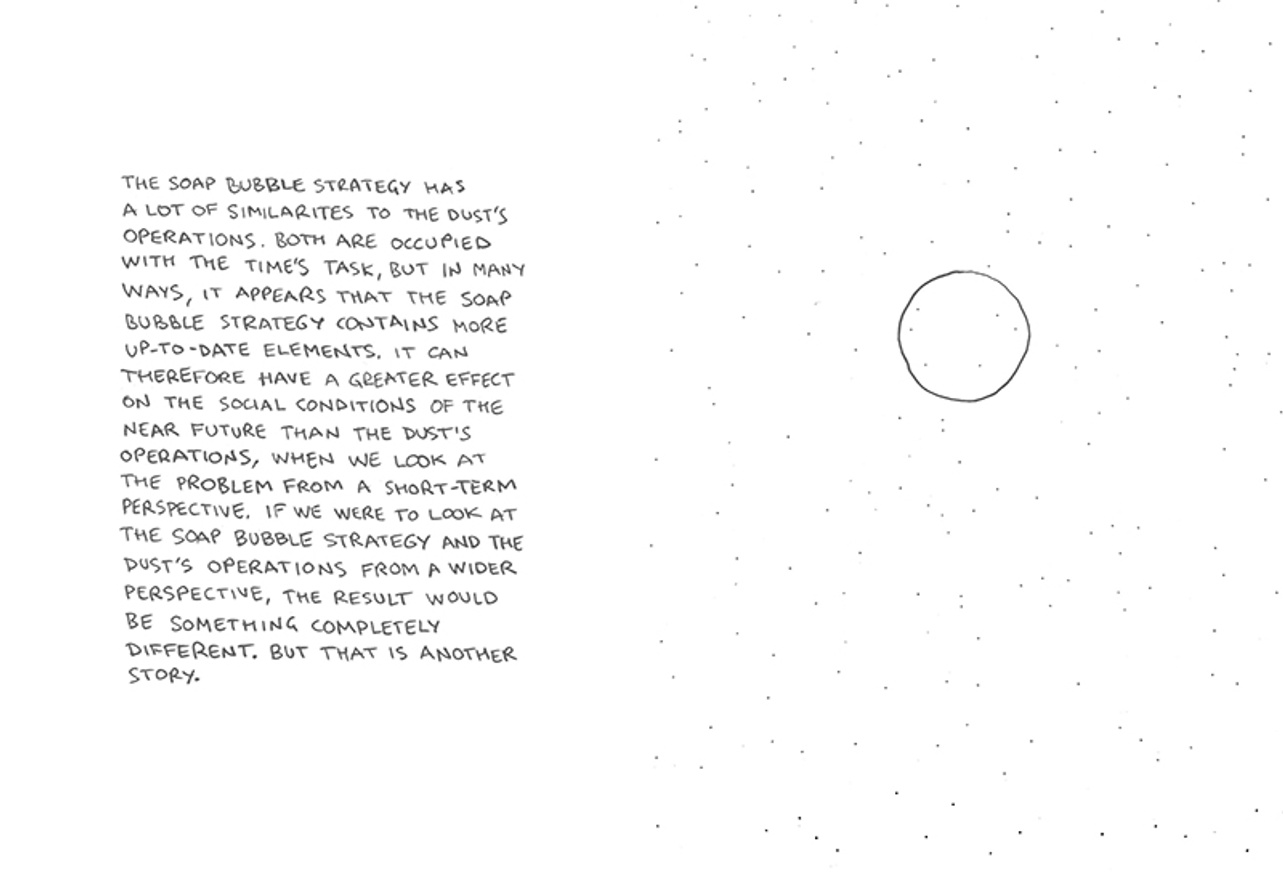 THE SOAP BUBBLE STRATEGY HAS
A LOT OF SIMILARITES TO THE DUST'S
OPERATIONS. BOTH ARE OCCUPIED
WITH THE TIME'S TASK, BUT IN MANY
WAYS, IT APPEARS THAT THE SOAP
BUBBLE STRATEGY CONTAINS MORE
UP-TO-DATE ELEMENTS. IT CAN
THEREFORE HAVE A GREATER EFFECT
ON THE SOCIAL CONDITIONS OF THE
NEAR FUTURE THAN THE DUST'S
OPERATIONS, WHEN WE LOOK AT
THE PROBLEM FROM A SHORT-TERM
PERSPECTIVE. IF WE WERE TO LOOK AT
THE SOAP BUBBLE STRATEGY AND THE
DUST'S OPERATIONS FROM A WIDER
PERSPECTIVE, THE RESULT WOULD
BE SOMETHING COMPLETELY
DIFFERENT. BUT THAT IS ANOTHER
STORY.